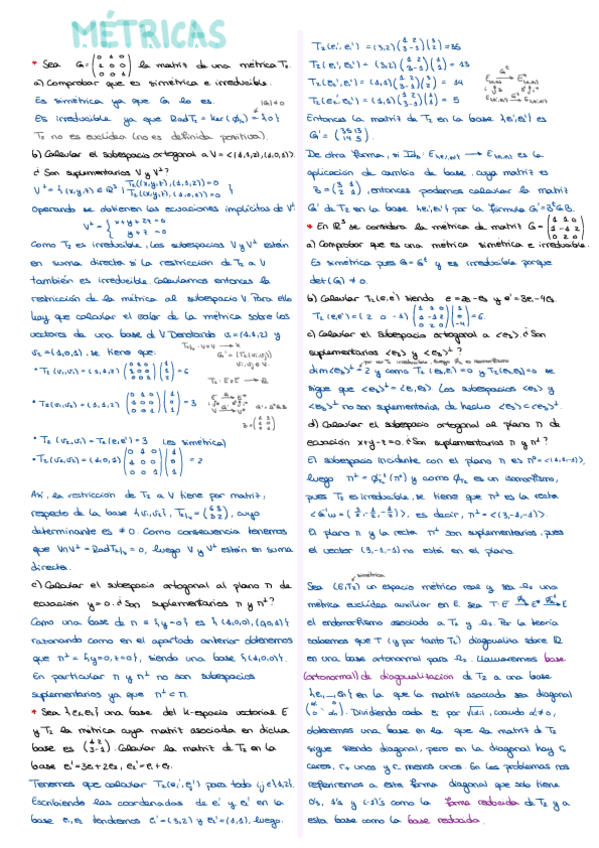 MÉTRICAS
* Sea G = (0 1 0 / 1 0 0 / 0 0 1) la matriz de una métrica T₂.
a) Comprobar que es simétrica e irreducible.
Es simétrica ya que G lo es. |G| ≠ 0
Es irreducible ya que Rad T₂ = ker(ϕ) = {0}
T₂ no es euclídea (no es definida positiva).
b) Calcular el subespacio ortogonal a V = <(1,1,2),(1,0,1)>.
¿Son suplementarios V y V⊥?
V⊥ = {(x,y,z) ∈ ℝ³ | T₂((x,y,z),(1,1,2)) = 0 T₂((x,y,z),(1,0,1)) = 0}
Operando se obtienen las ecuaciones implícitas de V⊥:
V⊥ = { x+y+2z = 0
y+z = 0
Como T₂ es irreducible, los subespacios V y V⊥ están
en suma directa si la restricción de T₂ a V
también es irreducible. Calculamos entonces la
restricción de la métrica al subespacio V. Para ello
hay que calcular el valor de la métrica sobre los
vectores de una base de V. Denotando v₁=(1,1,2) y
v₂=(1,0,1), se tiene que:
• T₂(v₁,v₁) = (1,1,2) (0 1 0 / 1 0 0 / 0 0 1) (1 / 1 / 2) = 6
• T₂(v₁,v₂) = (1,1,2) (0 1 0 / 1 0 0 / 0 0 1) (1 / 0 / 1) = 3
• T₂(v₂,v₁) = T₂(e,e') = 3 (es simétrica)
• T₂(v₂,v₂) = (1,0,1) (0 1 0 / 1 0 0 / 0 0 1) (1 / 0 / 1) = 2
Así, la restricción de T₂ a V tiene por matriz,
respecto de la base {v₁,v₂}, T₂|ᵥ = (6 3 / 3 2), cuyo
determinante es ≠ 0. Como consecuencia tenemos
que V∩V⊥ = Rad T₂|ᵥ = 0, luego V y V⊥ están en suma
directa.
c) Calcular el subespacio ortogonal al plano π de
ecuación y=0. ¿Son suplementarios π y π⊥?
Como una base de π = {y=0} es {(1,0,0),(0,0,1)}
razonando como en el apartado anterior obtenemos
que π⊥ = {y=0, z=0}, siendo una base {(1,0,0)}.
En particular π y π⊥ no son subespacios
suplementarios ya que π⊥ ⊂ π.
* Sea {e₁,e₂} una base del k-espacio vectorial E
y T₂ la métrica cuya matriz asociada en dicha
base es (1 2 / 3 -1). Calcular la matriz de T₂ en la
base e₁'=3e₁+2e₂, e₂'=e₁+e₂.
Tenemos que calcular T₂(eᵢ',eⱼ') para todo i,j∈{1,2}.
Escribiendo las coordenadas de e₁' y e₂' en la
base e₁,e₂ tendremos e₁'=(3,2) y e₂'=(1,1), luego:
T₂(e₁',e₁') = (3,2) (1 2 / 3 -1) (3 / 2) = 35
T₂(e₁',e₂') = (3,2) (1 2 / 3 -1) (1 / 1) = 13
T₂(e₂',e₁') = (1,1) (1 2 / 3 -1) (3 / 2) = 14
T₂(e₂',e₂') = (1,1) (1 2 / 3 -1) (1 / 1) = 5
Entonces la matriz de T₂ en la base {e₁',e₂'} es
G' = (35 13 / 14 5).
De otra forma, si Id_E: E → E es la
aplicación de cambio de base, cuya matriz es
B = (3 1 / 2 1), entonces podemos calcular la matriz
G' de T₂ en la base {e₁',e₂'} por la fórmula G'=BᵗGB.
* En ℝ³ se considera la métrica de matriz G = (1 1 0 / 1 -1 2 / 0 2 0)
a) Comprobar que es una métrica simétrica e irreducible.
Es simétrica pues G=Gᵗ y es irreducible porque
det(G) ≠ 0.
b) Calcular T₂(e,e') siendo e=2e₁-e₃ y e'=3e₁-4e₃.
T₂(e,e') = (2 0 -1) (1 1 0 / 1 -1 2 / 0 2 0) (3 / 0 / -4) = 6.
c) Calcular el subespacio ortogonal a <e₃>. ¿Son
suplementarios <e₃> y <e₃>⊥?
dim<e₃>⊥ = 2 y como T₂(e₃,e₁)=0 y T₂(e₃,e₃)=0 se
sigue que <e₃>⊥ = <e₁,e₃>. Los subespacios <e₃> y
<e₃>⊥ no son suplementarios, de hecho <e₃> ⊂ <e₃>⊥.
d) Calcular el subespacio ortogonal al plano π de
ecuación x+y-z=0. ¿Son suplementarios π y π⊥?
El subespacio incidente con el plano π es π°=<(1,1,-1)>,
luego π⊥ = ϕ⁻¹(π°) y como ϕ es un isomorfismo,
pues T₂ es irreducible, se tiene que π⊥ es la recta
es decir, π⊥ = <(3,-1,-1)>.
El plano π y la recta π⊥ son suplementarios, pues
el vector (3,-1,-1) no está en el plano.
simétrica
Sea (E,T₂) un espacio métrico real y sea Ω₂ una
métrica euclídea auxiliar en E. Sea T: E → E* → E
el endomorfismo asociado a T₂ y Ω₂. Por la teoría
sabemos que T (y por tanto T₂) diagonaliza sobre ℝ
en una base ortonormal para Ω₂. Llamaremos base
(ortonormal) de diagonalización de T₂ a una base
{e₁,…,eₙ} en la que la matriz asociada sea diagonal
Dividiendo cada eᵢ por √|αᵢ|, cuando αᵢ≠0,
obtenemos una base en la que la matriz de T₂
sigue siendo diagonal, pero en la diagonal hay
ceros, r₊ unos y r₋ menos unos. En los problemas nos
referiremos a esta forma diagonal que solo tiene
0's, 1's y (-1)'s como la forma reducida de T₂ y a
esta base como la base reducida.